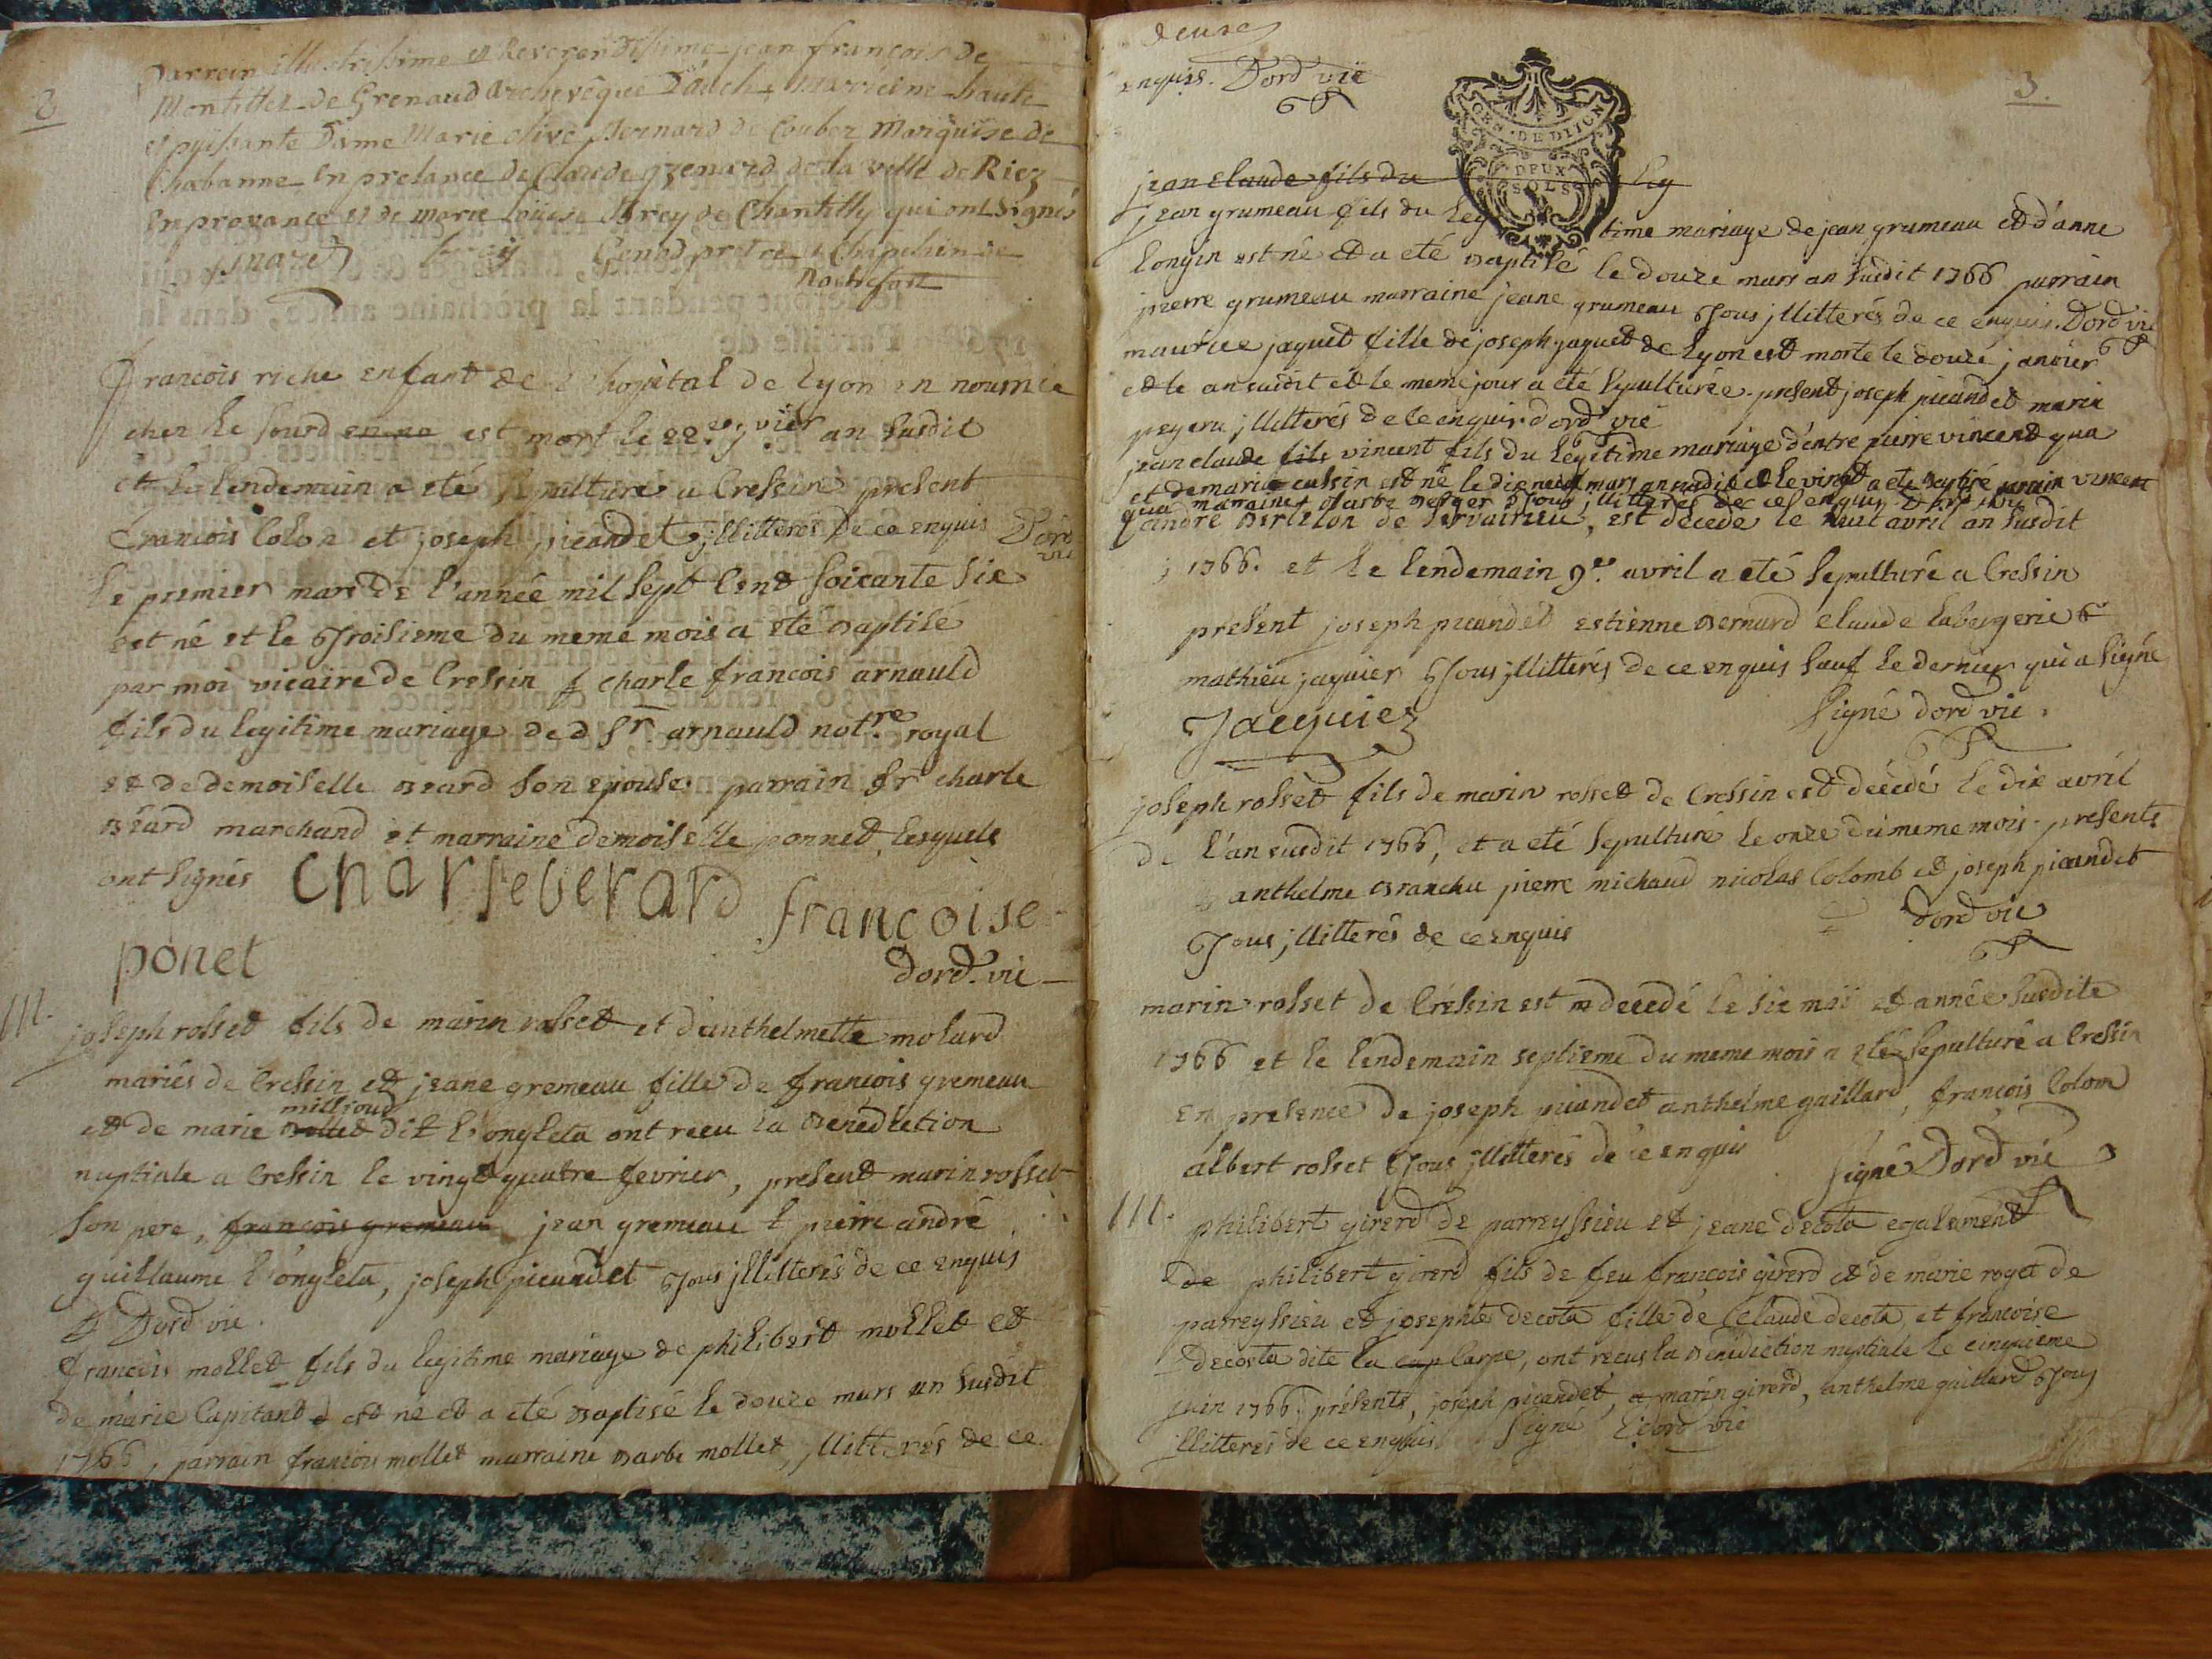 2
parrain illustrissime et Reverendissime jean françois de
Montillet de Grenaud Archevêque Dauch, Marreine haute
et puissante Dame Marie olive Bernard de Coubez Marquise de
Chabanne En presance de Claude grenard de la ville de Riez
En provance et de marie loüise Brey de Chantilly qui ont Signés
Genod prêtre Chapelain de
Rochefort
francois riche enfant de l'hopital de lyon en nourrice
chez le sourd en ne est mort le 22.e j.vier an susdit
et le lendemain a eté sepulturé a Cressin present
francois Colon et joseph picandet jllitteres de ce enquis Dord
vic
le premier mars de l'année mil sept Cent soixante six
est né et le troisieme du meme mois a eté Baptisé
par moi vicaire de Cressin charle francois arnauld
fils du legitime mariage de d Sr. arnauld not.re royal
et de demoiselle Beard son epouse parrain sr charle
Beard marchand et marraine demoiselle ponnet, lesquels
ont signés charle berard francoise
ponet
Dord. vic
111.
joseph rosset fils de marin rosset et d'anthelmette molard
mariés de Cressin et jeane gremeau fille de francois gremeau
milljoud
et de marie dit l'ongleta ont recu la Benediction
nuptiale a Cressin le vingt quatre fevrier, present marin rosset
son pere, francois gremeau jean gremeau pierre andré
guillaume l'ongleta, joseph picandet tous jllitterés de ce enquis
Dord vic.
francois mollet fils du legitime mariage de philibert mollet et
de marie Capitant est né et a eté Baptisé le douze mars an susdit
1766, parrain francois mollet marraine Barbe mollet, jllitterés de ce
3.
enquis. Dord vic
GEN. DE DIJON
DEUX
SOLS
jean claude fils du leg
jean grumeau fils du legitime mariage de jean grumeau et d'anne
longin est né et a eté Baptisé le douze mars an susdit 1766 parrain
pierre grumeau marraine jeane grumeau tous jllitterés de ce enquis. Dord vic
maurice jaquet fille de joseph jaquet de lyon est morte le douze janvier
et le an susdit et le meme jour a eté sepulturée. present joseph picandet marin
peyere jllitterés de ce enquis dord vic
jean claude fils vincent fils du legitime mariage d'entre pierre vincent qua
et de marie cussin est né le dixneuf mars an susdit et le vingt a eté Baptisé parrain vincent
qua marraine Barbe Berger tous jllitterés de ce enquis dord vic
andré Bertelon de Servairieu, est decedé le huit avril an susdit
1766. et le lendemain 9.e avril a eté sepulturé a Cressin
present joseph picandet estienne Bernard claude labergerie
mathieu jaquier tous jllitterés de ce enquis sauf le dernier qui a signé
Jacquiez signé dord vic.
joseph rosset fils de marin rosset de Cressin est decedé le dix avril
de l'an susdit 1766, et a eté sepulturé le onze du meme mois. presents
anthelme Branchu pierre michaud nicolas Colomb et joseph picandet
tous jllitterés de ce enquis dord vic
marin rosset de Cressin est decedé le six mai et année susdite
1766 et le lendemain septieme du meme mois a eté sepulturé a Cressin
En presence de joseph picandet anthelme gaillard, francois Colom
albert rosset tous jllitterés de ce enquis signé Dord vic
111.
philibert girerd de parreyssieu et jeane decota egalement
de philibert girerd fils de feu francois girerd et de marie roget de
parreyssieu et josephte decota fille de Claude decota et francoise
decosta dite la cap Carpe, ont recus la Benediction nuptiale le cinquieme
juin 1766. présents, joseph picandet, et marin girerd, anthelme gaillard tous
jllitterés de ce enquis. Signé Dord vic